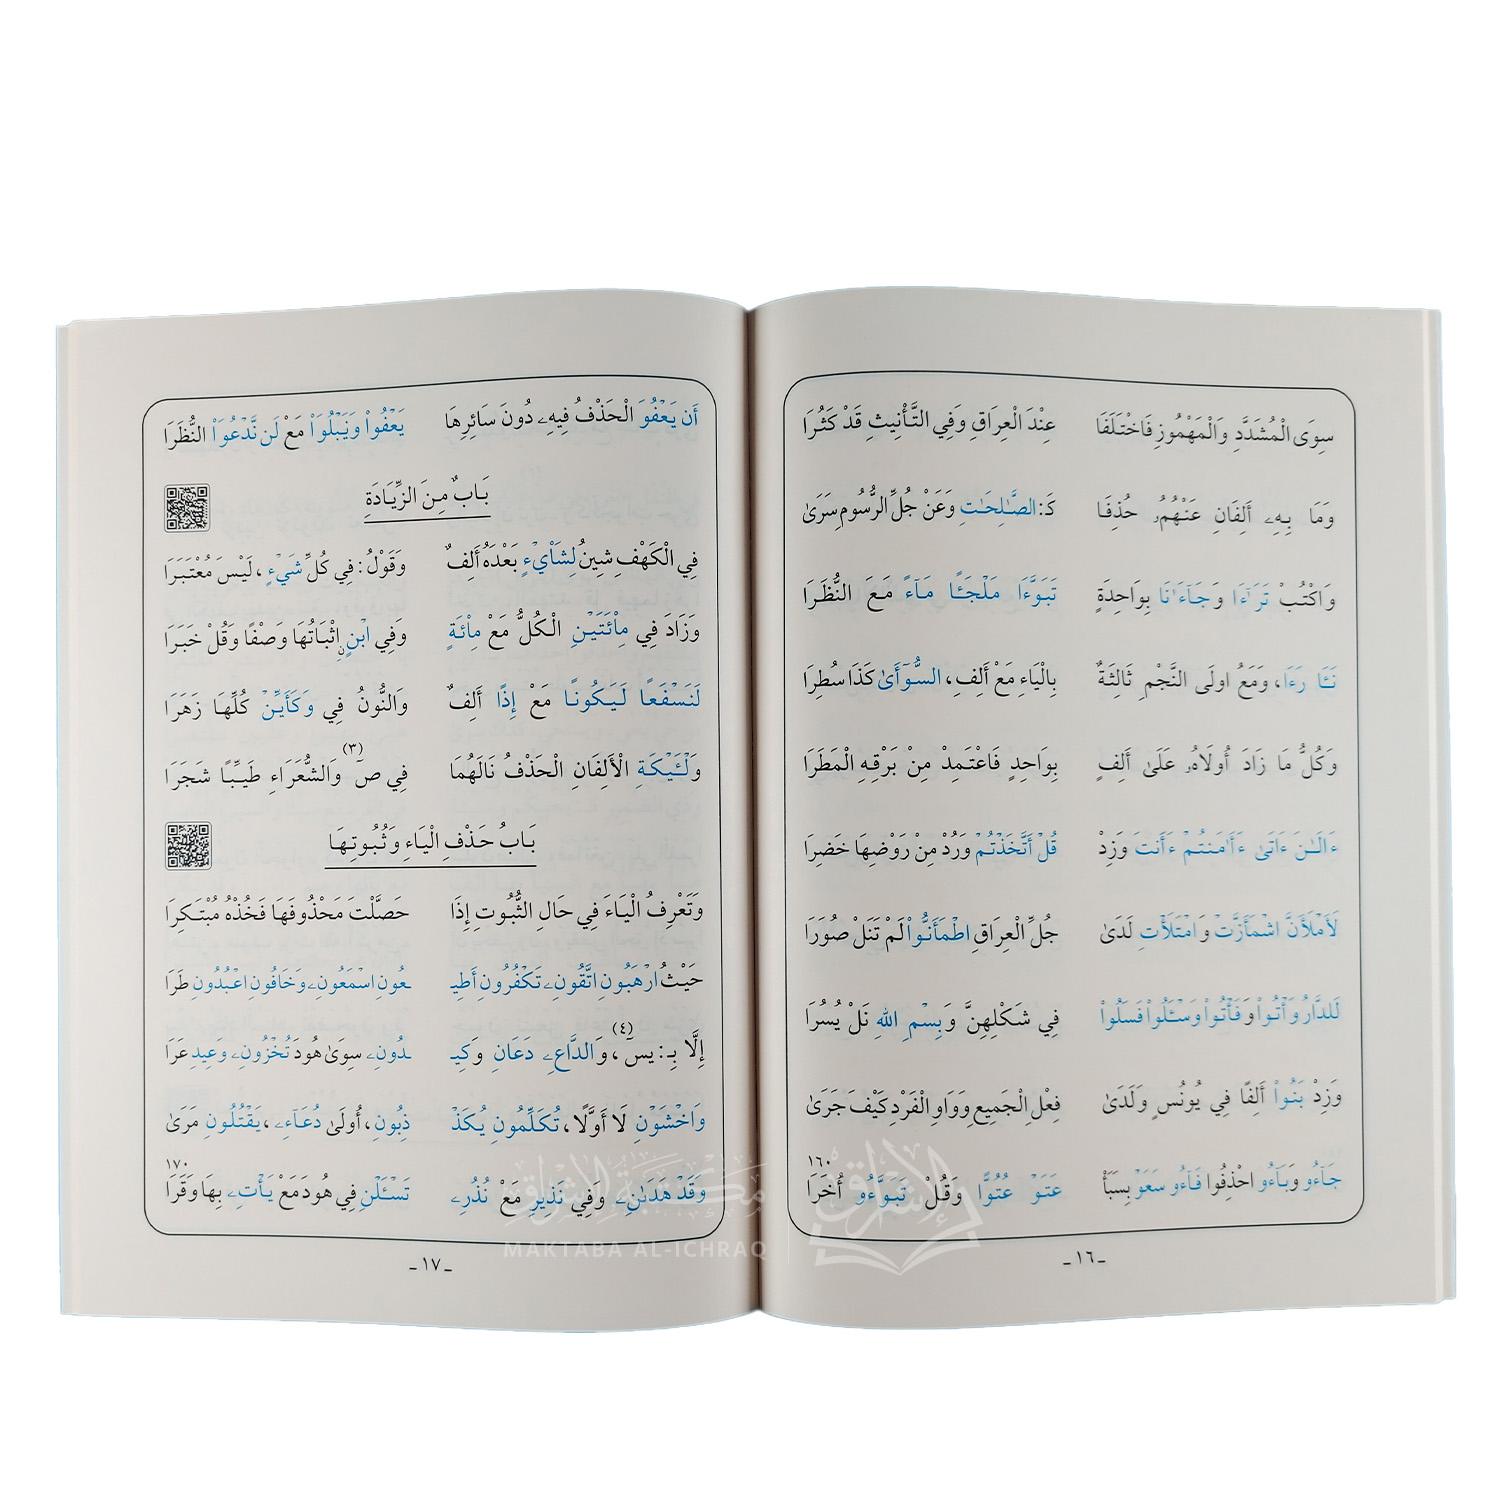 سِوَى الْمُشَدَّدِ وَالْمَهْمُوزِ فَاخْتَلَفَا عِنْدَ الْعِرَاقِ وَفِي التَّأْنِيثِ قَدْ كَثُرَا
وَمَا بِهِۦ أَلِفَانِ عَنْهُمُۥ حُذِفَا كَـ: الصَّٰلِحَٰتِ وَعَنْ جُلِّ الرُّسُومِ سَرَىٰ
وَاكْتُبْ تَرَٰٓءَا وَجَآءَٰنَا بِوَاحِدَةٍ تَبَوَّءَا مَلْجَـًٔا مَآءً مَعَ النُّظَرَا
نَـَٔا رَءَا، وَمَعُ اولَى النَّجْمِ ثَالِثَةٌ بِالْيَاءِ مَعْ أَلِفٍ، السُّوٓأَىٰ كَذَا سُطِرَا
وَكُلُّ مَا زَادَ أُولَاهُۥ عَلَىٰ أَلِفٍ بِوَاحِدٍ فَاعْتَمِدْ مِنْ بَرْقِهِ الْمَطَرَا
ءَالَـٰنَ ءَاتَىٰ ءَأَٰمَنتُمْ ءَأَنتَ وَزِدْ قُلْ أَتَّخَذْتُمْ وَرُدْ مِنْ رَوْضِهَا خَضِرَا
لَأَمْلَأَنَّ اشْمَأَزَّتْ وَامْتَلَأْتِ لَدَىٰ جُلِّ الْعِرَاقِ اطْمَأَنُّواْ لَمْ تَنَلْ صُوَرَا
لَلدَّارُ وَأْتُواْ وَفَأْتُواْ وَسْـَٔلُواْ فَسَلُواْ فِي شَكْلِهِنَّ وَبِسْمِ اللهِ نَلْ يُسُرَا
وَزِدْ بَنُواْ أَلِفًا فِي يُونُسٍ وَلَدَىٰ فِعْلِ الْجَمِيعِ وَوَاوِ الْفَرْدِ كَيْفَ جَرَىٰ
جَآءُو وَبَآءُو احْذِفُوا فَآءُو سَعَوْ بِسَبَأْ عَتَوْ عُتُوًّا وَقُلْ تَبَوَّءُو أُخَرَا
١٦٠
ـ ١٦ ـ
أَن يَعْفُوَ الْحَذْفُ فِيهِۦ دُونَ سَائِرِهَا يَعْفُواْ وَيَبْلُوَاْ مَعْ لَن نَّدْعُوَاْ النُّظَرَا
بَابٌ مِنَ الزِّيَادَةِ
فِي الْكَهْفِ شِينُ لِشَاْيْءٍ بَعْدَهُ أَلِفٌ وَقَوْلُ: فِي كُلِّ شَيْءٍ، لَيْسَ مُعْتَبَرَا
وَزَادَ فِي مِاْئَتَيْنِ الْكُلُّ مَعْ مِاْئَةٍ وَفِي ابْنٍ اِثْبَاتُهَا وَصْفًا وَقُلْ خَبَرَا
لَنَسْفَعًا لَيَكُونًا مَعْ إِذًا أَلِفٌ وَالنُّونُ فِي وَكَأَيِّنْ كُلِّهَا زَهَرَا
وَلْـَٔيْكَةِ الْأَلِفَانِ الْحَذْفُ نَالَهُمَا فِي صٓ (٣) وَالشُّعَرَاءِ طَيِّبًا شَجَرَا
بَابُ حَذْفِ الْيَاءِ وَثُبُوتِهَا
وَتَعْرِفُ الْيَاءَ فِي حَالِ الثُّبُوتِ إِذَا حَصَّلْتَ مَحْذُوفَهَا فَخُذْهُ مُبْتَكِرَا
حَيْثُ ارْهَبُونِ اتَّقُونِۦ تَكْفُرُونِ أَطِيـ ـعُونِ اسْمَعُونِۦ وَخَافُونِ اعْبُدُونِ طَرَا
إِلَّا بِـ: يسٓ (٤)، وَالدَّاعِۦ دَعَانِ وَكِيـ ـدُونِۦ سِوَىٰ هُودَ تُخْزُونِۦ وَعِيدِ عَرَا
وَاخْشَوْنِ لَا أَوَّلًا، تُكَلِّمُونِ يُكَذْ ذِبُونِ، أُولَىٰ دُعَآءِۦ، يَقْتُلُونِ مَرَىٰ
وَقَدْ هَدَىٰنِۦ وَفِي نَذِيرِ مَعْ نُذُرِۦ تَسْـَٔلْنِ فِي هُودَ مَعْ يَأْتِۦ بِهَا وَقَرَا
١٧٠
ـ ١٧ ـ
مكتبة الإشراق
MAKTABA AL-ICHRAQ
الإشراق